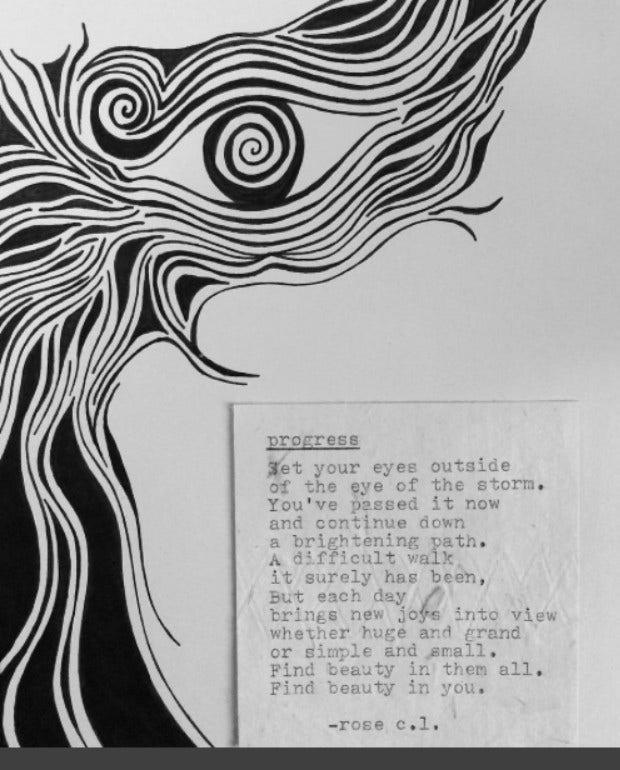 progress
Set your eyes outside
of the eye of the storm.
You've passed it now
and continue down
a brightening path.
A difficult walk
it surely has been,
But each day
brings new joys into view
whether huge and grand
or simple and small.
Find beauty in them all.
Find beauty in you.
-rose c.l.